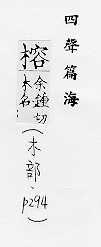 四聲篇海
榕 余鍾切
木名
(木部、p294)